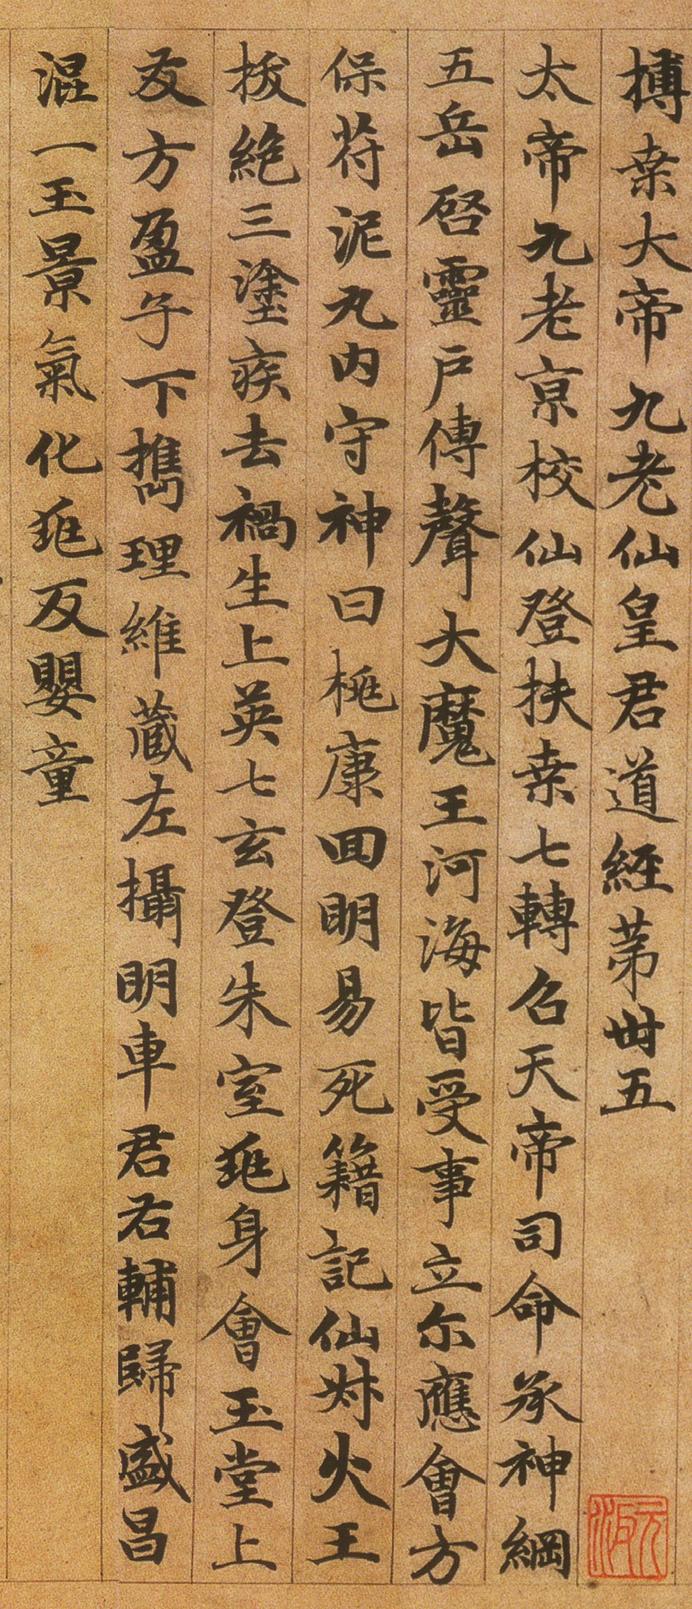 搏桒大帝九老仙皇君道經苐卌五
太帝九老京校仙登扶桒七轉召天帝司命承神綱
五岳啓靈戶傳聲大魔王河海皆受事立尓應會方
保苻泥丸内守神曰桃康回明易死籍記仙尌火王
拔絶三塗疾去禍生上英七玄登朱室砲身會玉堂上
友方盈子下攜理維蔵左攝明車君右輔歸盛昌
混一玉景氣化砲反嬰童